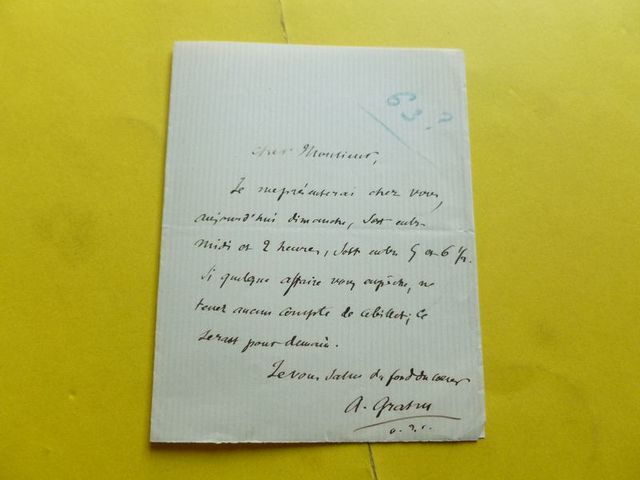 63?
Cher Monsieur,
Je me présenterai chez vous,
aujourd'hui dimanche, soit entre
midi et 2 heures, soit entre 5 et 6 1/2.
Si quelque affaire vous empêche, ne
tenez aucun compte de ce billet; ce
serait pour demain.
Je vous salue du fond du coeur
A. Gratry